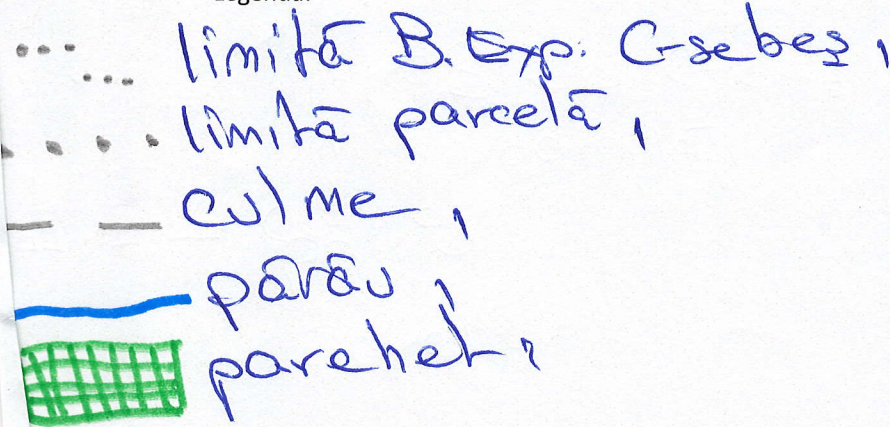 limită B. Exp. C-sebeș,
limită parcelă,
culme,
pârâu,
parchet,